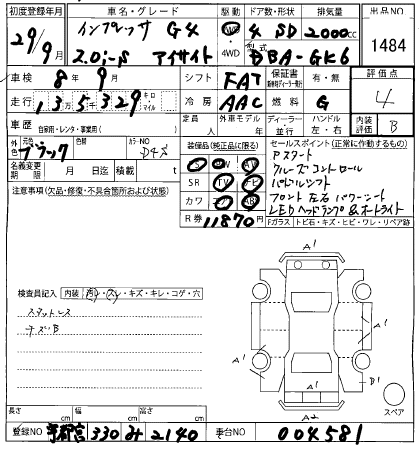 初度登録年月 車名・グレード 駆動 ドア数・形状 排気量 出品NO
29年9月 インプレッサ G4 4 SD 2000cc 1484
2.0i-S アイサイト 4WD 型式 DBA-GK6
車検 8年9月 シフト FAT 保証書 有・無 評価点
走行 135千329 キロ マイル 冷房 AAC 燃料 G 4
車歴 自家用・レンタ・事業用( ) 定員 人 外車モデル 年 ディーラー 並行 ハンドル 左・右 内装評価 B
外色 元色 ブラック 色替 カラーNO D4S 装備品(純正品に限る) セールスポイント(正常に作動するもの)
名義変更期限 月 日迄 積載 t
Pスタート
クルーズコントロール
SR TV ナビ パドルシフト
注意事項(欠品・修復・不具合箇所および状態) カワ AB フロント左右パワーシート
LEDヘッドランプ&オートライト
R券 11870円 Fガラス トビ石・キズ・ヒビ・ワレ・リペア跡
A1
検査員記入 内装 ・スレ・キズ・キレ・コゲ・穴
キズB
A1 A1
A1 B1
スペア
A2
長さ cm 幅 cm 高さ cm
登録NO 宇都宮 330 み 2140 車台NO 004581